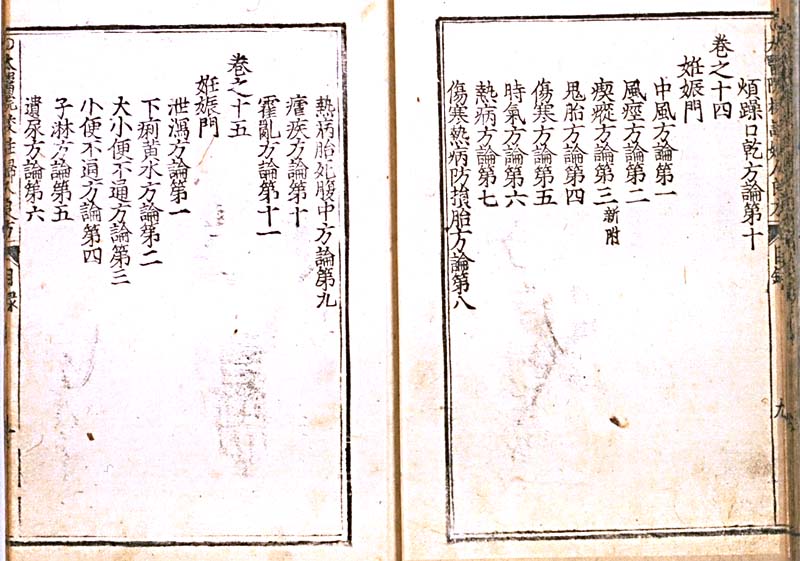 煩躁口乾方論第十
卷之十四
妊娠門
中風方論第一
風痙方論第二
瘈瘲方論第三 新附
鬼胎方論第四
傷寒方論第五
時氣方論第六
熱病方論第七
傷寒熱病防損胎方論第八
目錄
九
熱病胎死腹中方論第九
瘧疾方論第十
霍亂方論第十一
卷之十五
妊娠門
泄瀉方論第一
下痢黃水方論第二
大小便不通方論第三
小便不通方論第四
子淋方論第五
遺尿方論第六
太醫院校註婦人良方
目錄